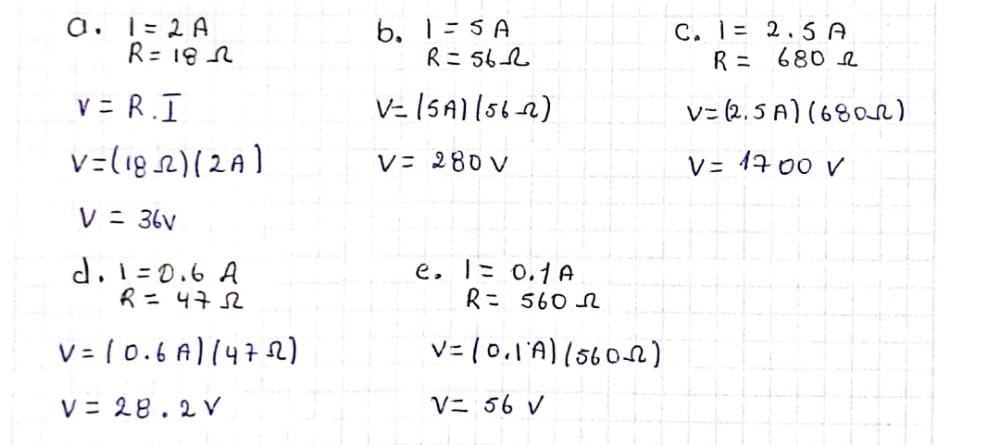 a. I = 2 A
R = 18 Ω
V = R . I
V = (18 Ω) (2 A)
V = 36v
b. I = 5 A
R = 56 Ω
V = (5A) (56 Ω)
V = 280 V
c. I = 2.5 A
R = 680 Ω
V = (2.5 A) (680Ω)
V = 1700 V
d. I = 0.6 A
R = 47 Ω
V = (0.6 A) (47 Ω)
V = 28.2 V
e. I = 0.1 A
R = 560 Ω
V = (0.1 A) (560Ω)
V = 56 V